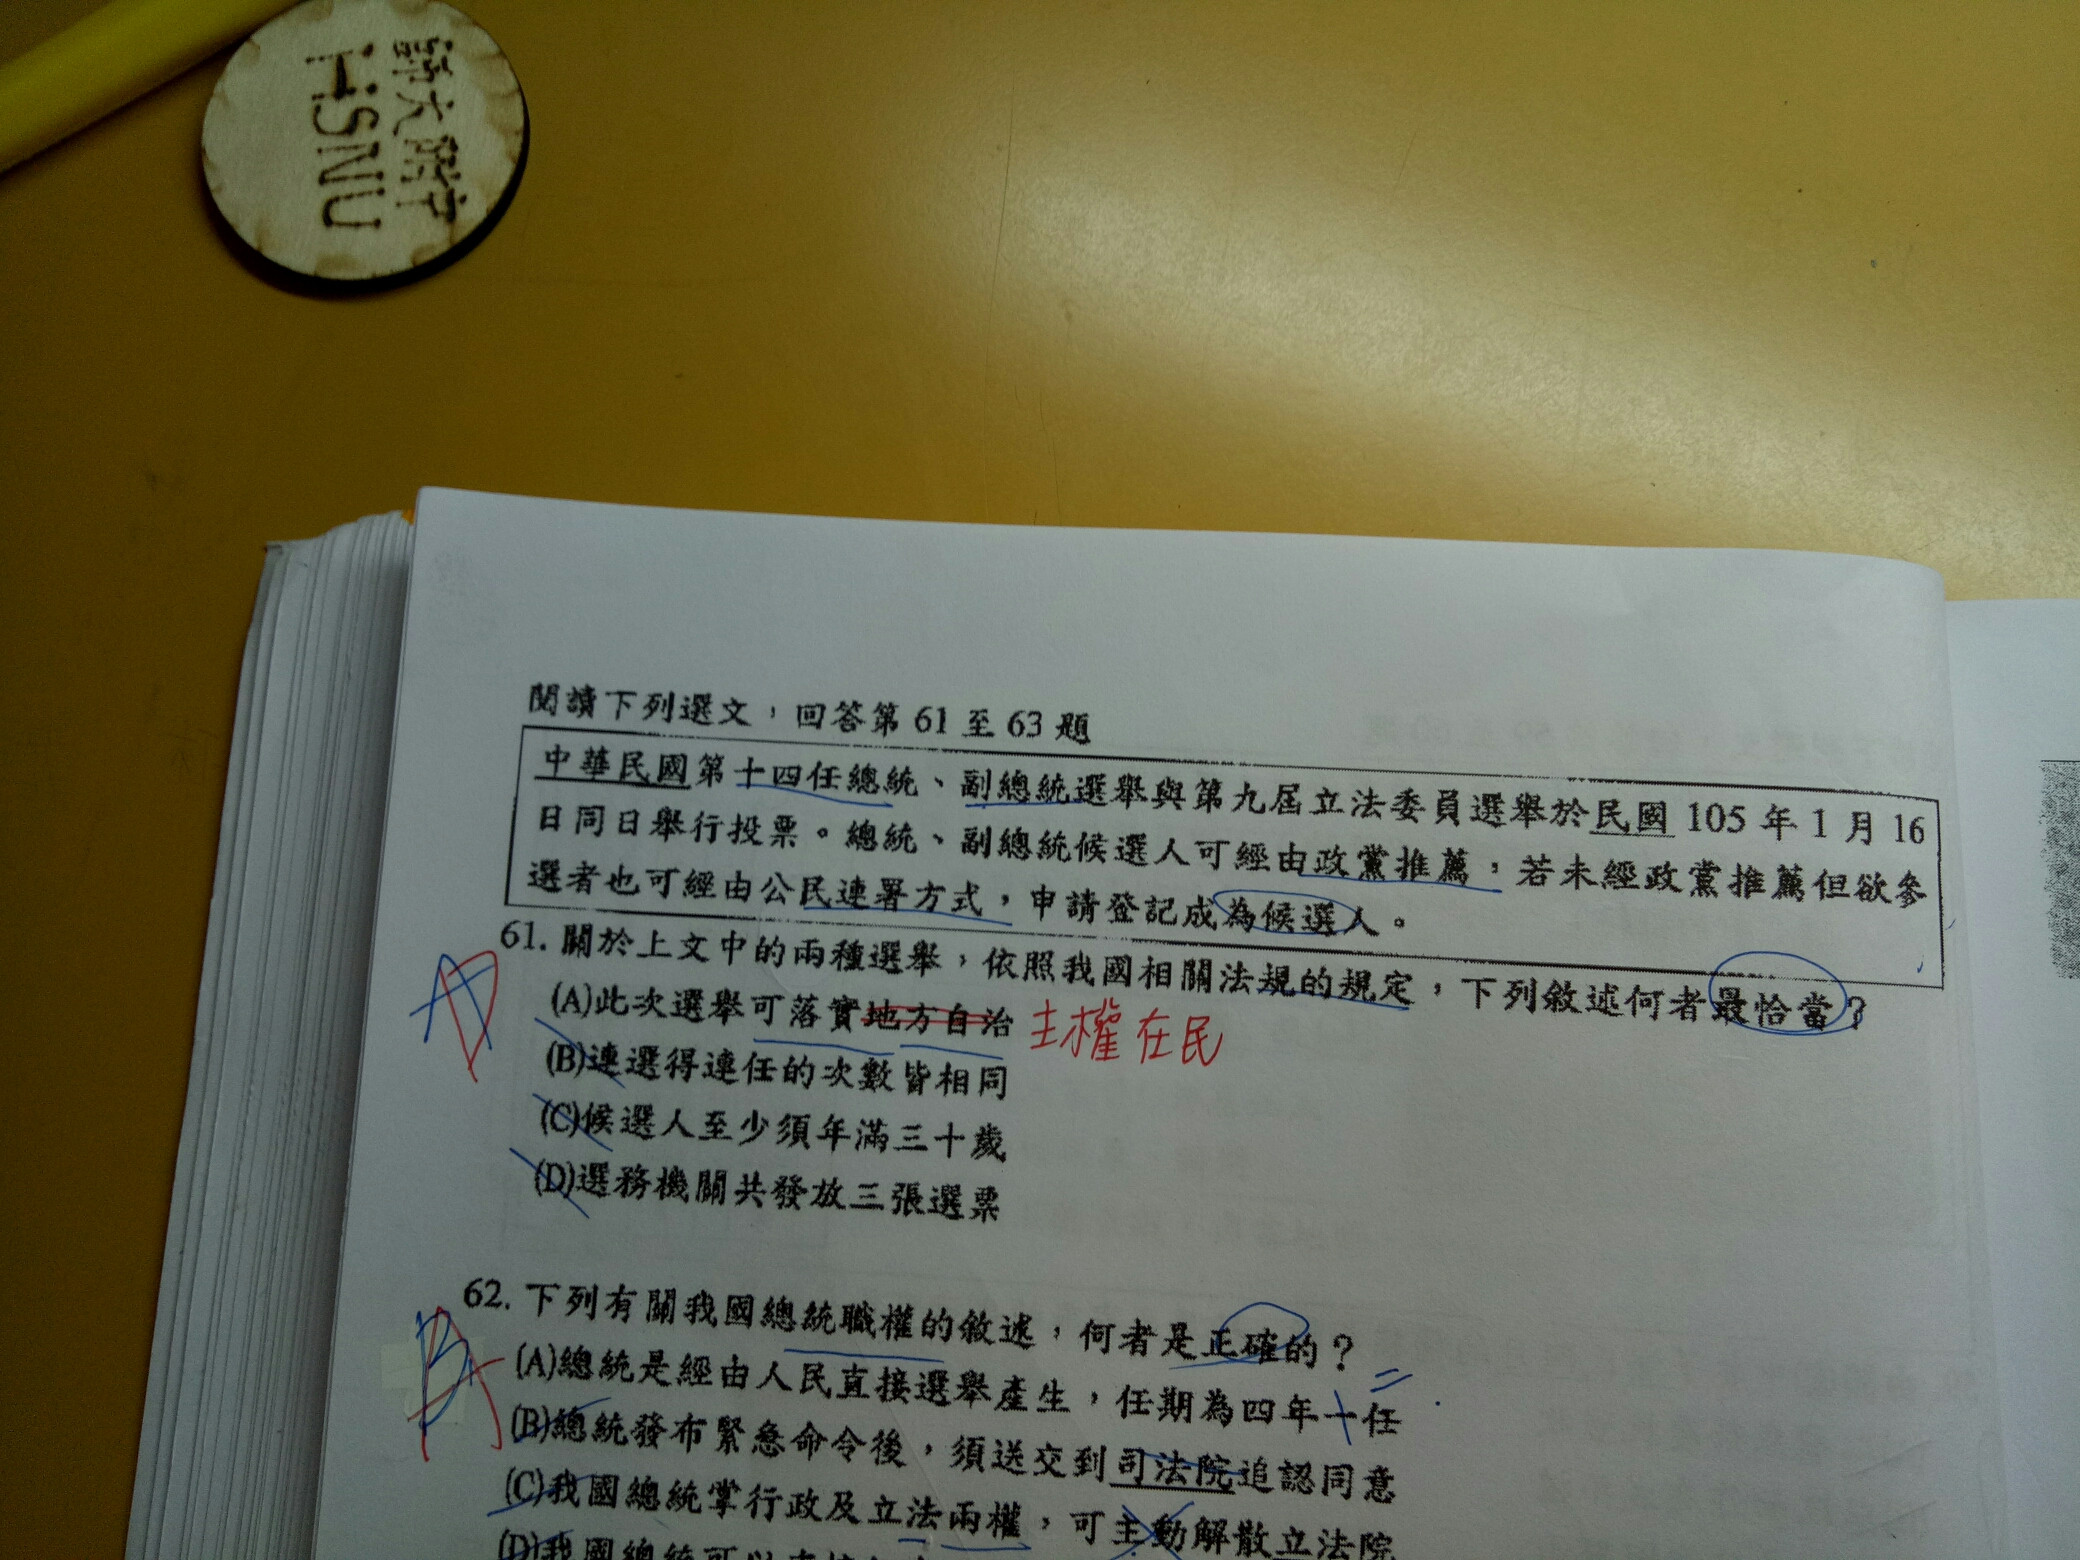 師大附中
HSNU
閱讀下列選文，回答第 61 至 63 題
中華民國第十四任總統、副總統選舉與第九屆立法委員選舉於民國 105 年 1 月 16
日同日舉行投票。總統、副總統候選人可經由政黨推薦，若未經政黨推薦但欲參
選者也可經由公民連署方式，申請登記成為候選人。
61. 關於上文中的兩種選舉，依照我國相關法規的規定，下列敘述何者最恰當？
A D
(A)此次選舉可落實地方自治 主權在民
(B)連選得連任的次數皆相同
(C)候選人至少須年滿三十歲
(D)選務機關共發放三張選票
62. 下列有關我國總統職權的敘述，何者是正確的？
B A
(A)總統是經由人民直接選舉產生，任期為四年一任
(B)總統發布緊急命令後，須送交到司法院追認同意
(C)我國總統掌行政及立法兩權，可主動解散立法院
(D)我國總統可以